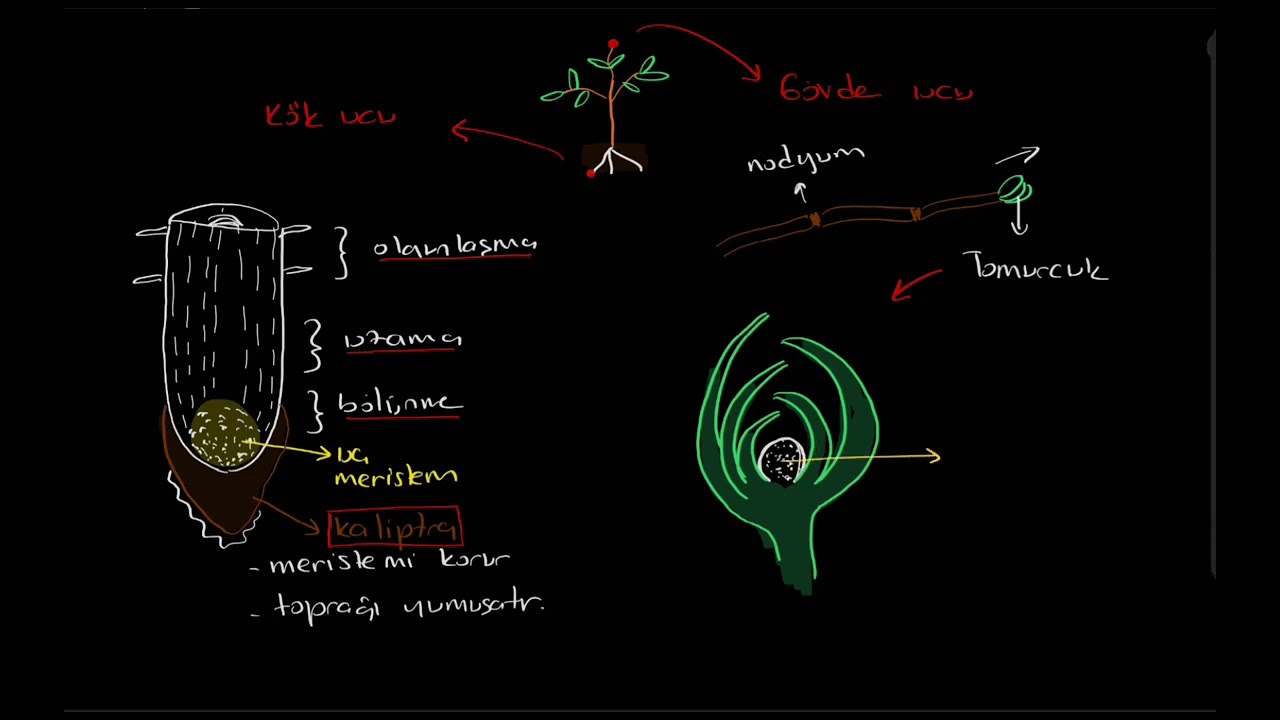 Kök ucu
Gövde ucu
nodyum
Tomurcuk
olgunlaşma
uzama
bölünme
uç
meristem
kaliptra
- meristemi korur
- toprağı yumuşatır.